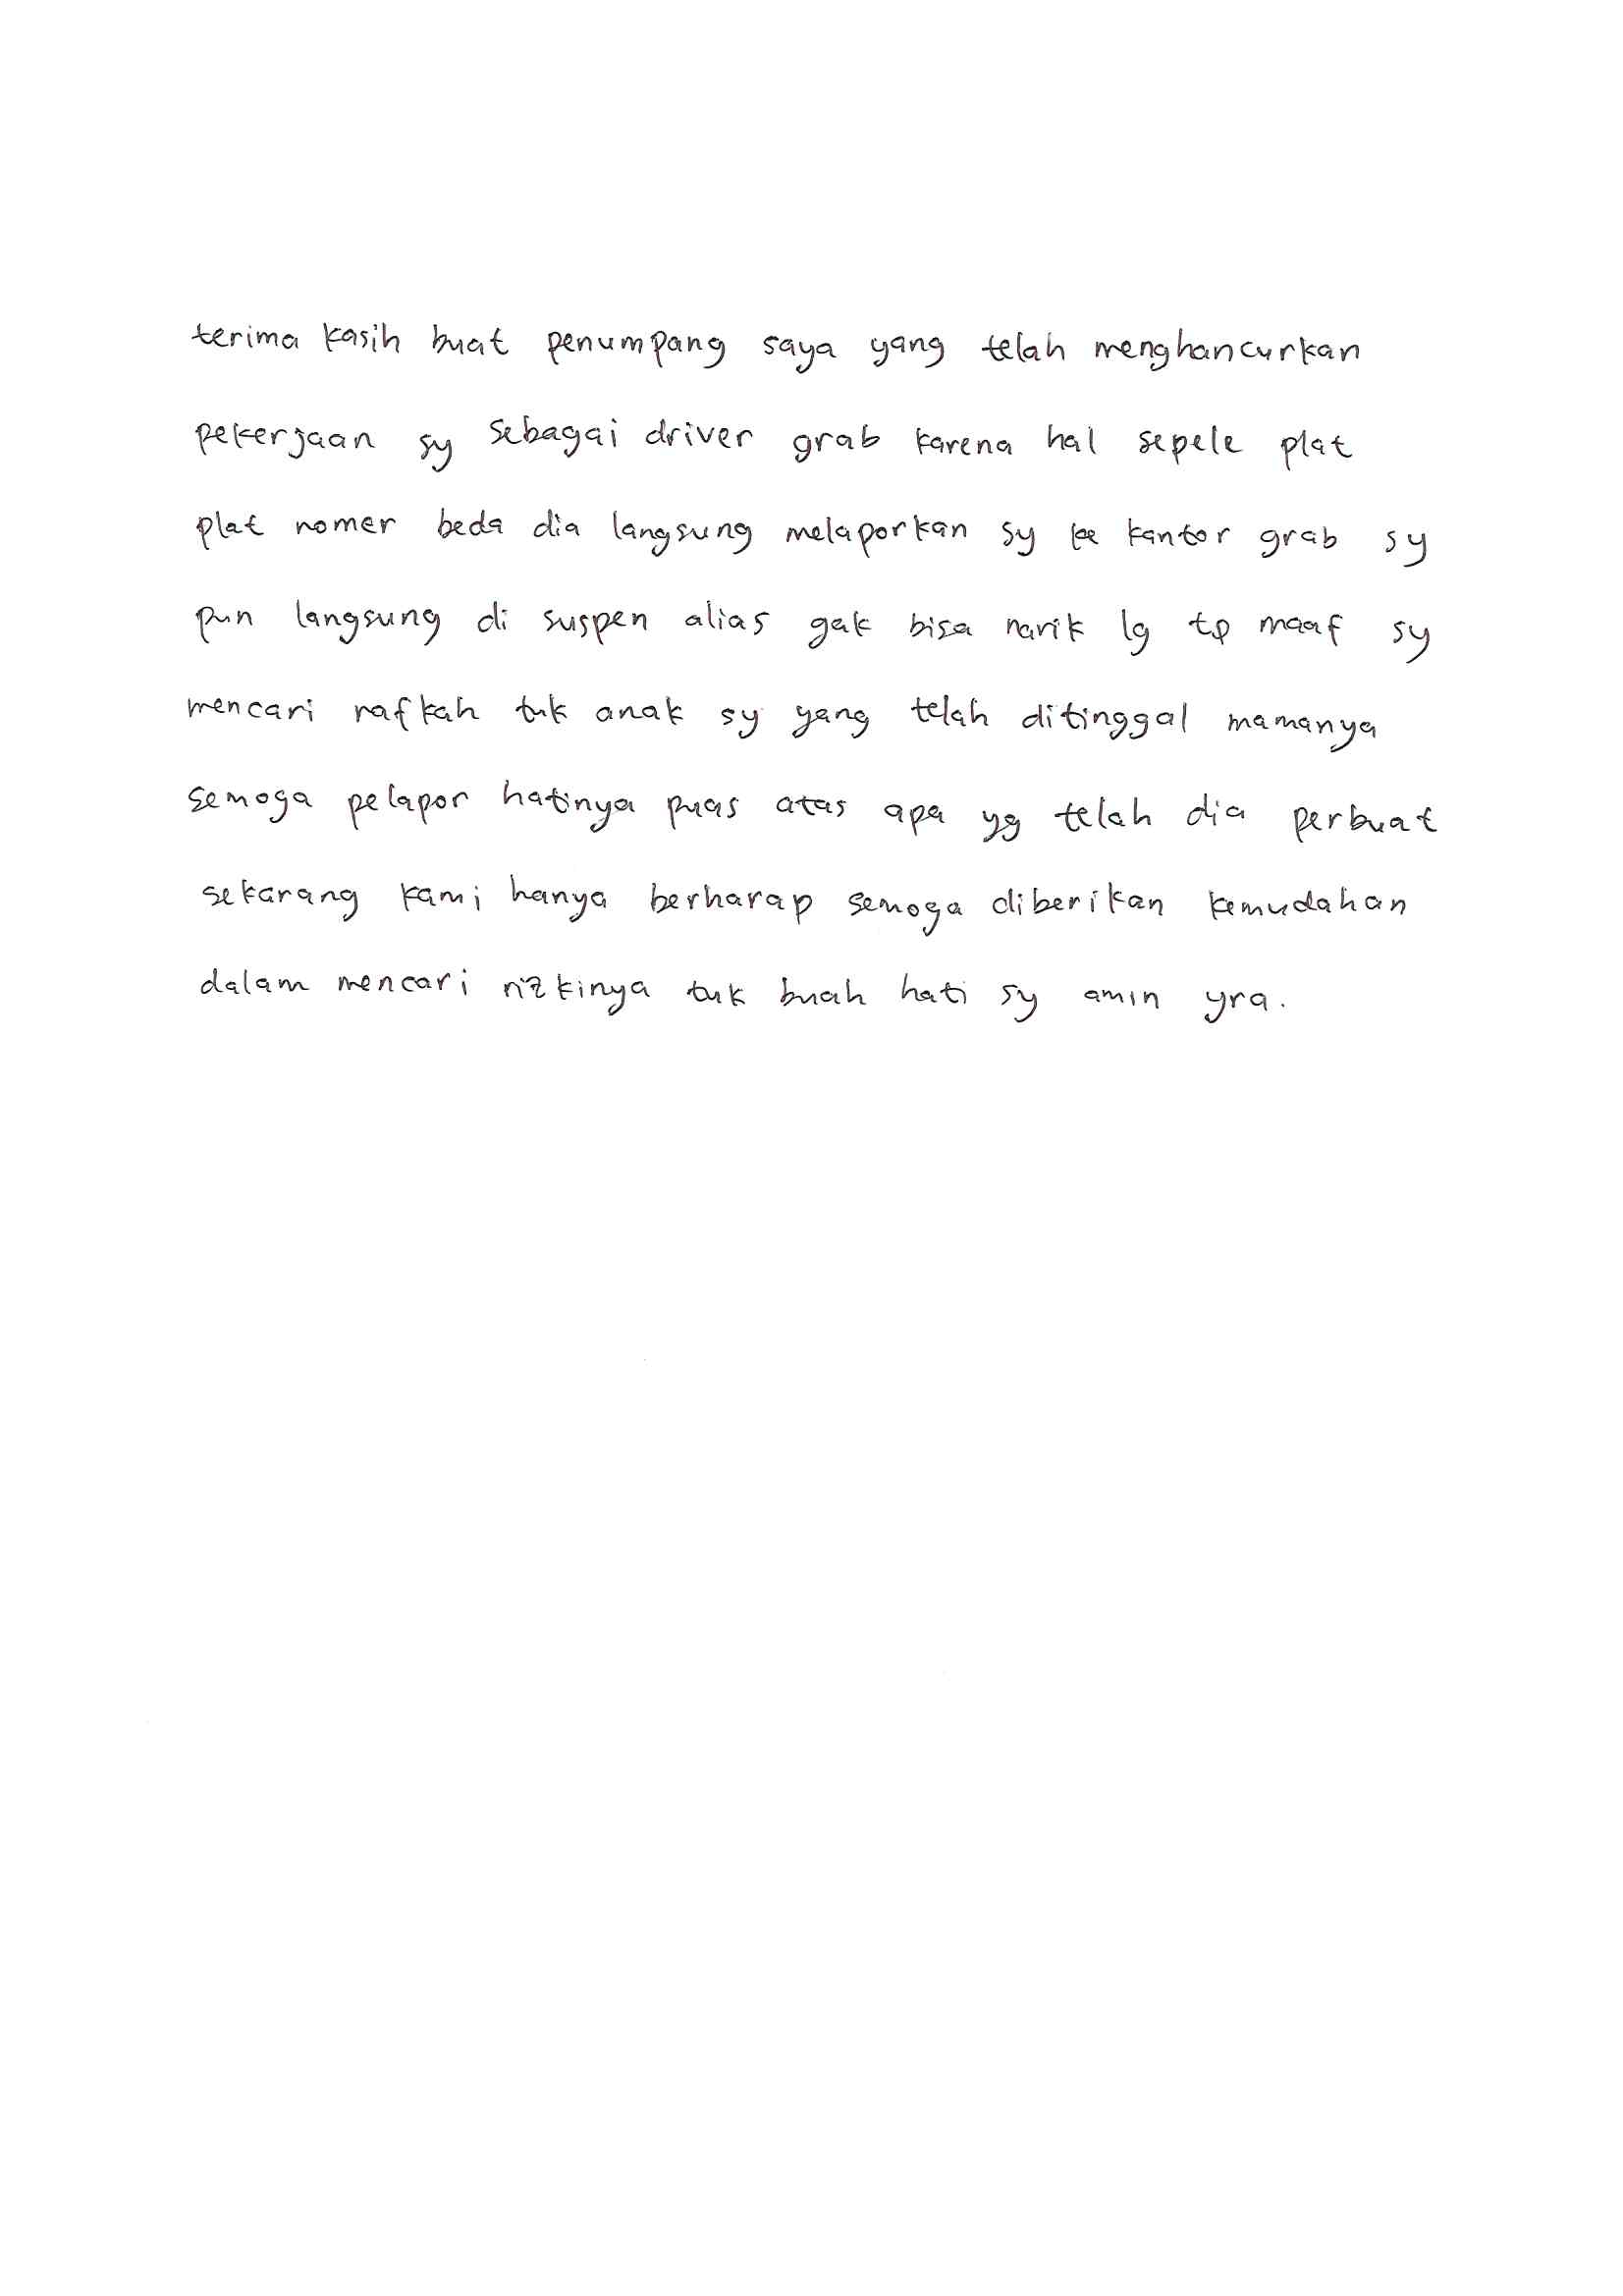 terima kasih buat penumpang saya yang telah menghancurkan
pekerjaan sy sebagai driver grab karena hal sepele plat
plat nomer beda dia langsung melaporkan sy ke kantor grab sy
pun langsung di suspen alias gak bisa narik lg tp maaf sy
mencari nafkah tuk anak sy yang telah ditinggal mamanya
semoga pelapor hatinya puas atas apa yg telah dia perbuat
sekarang kami hanya berharap semoga diberikan kemudahan
dalam mencari rizkinya tuk buah hati sy amin yra.